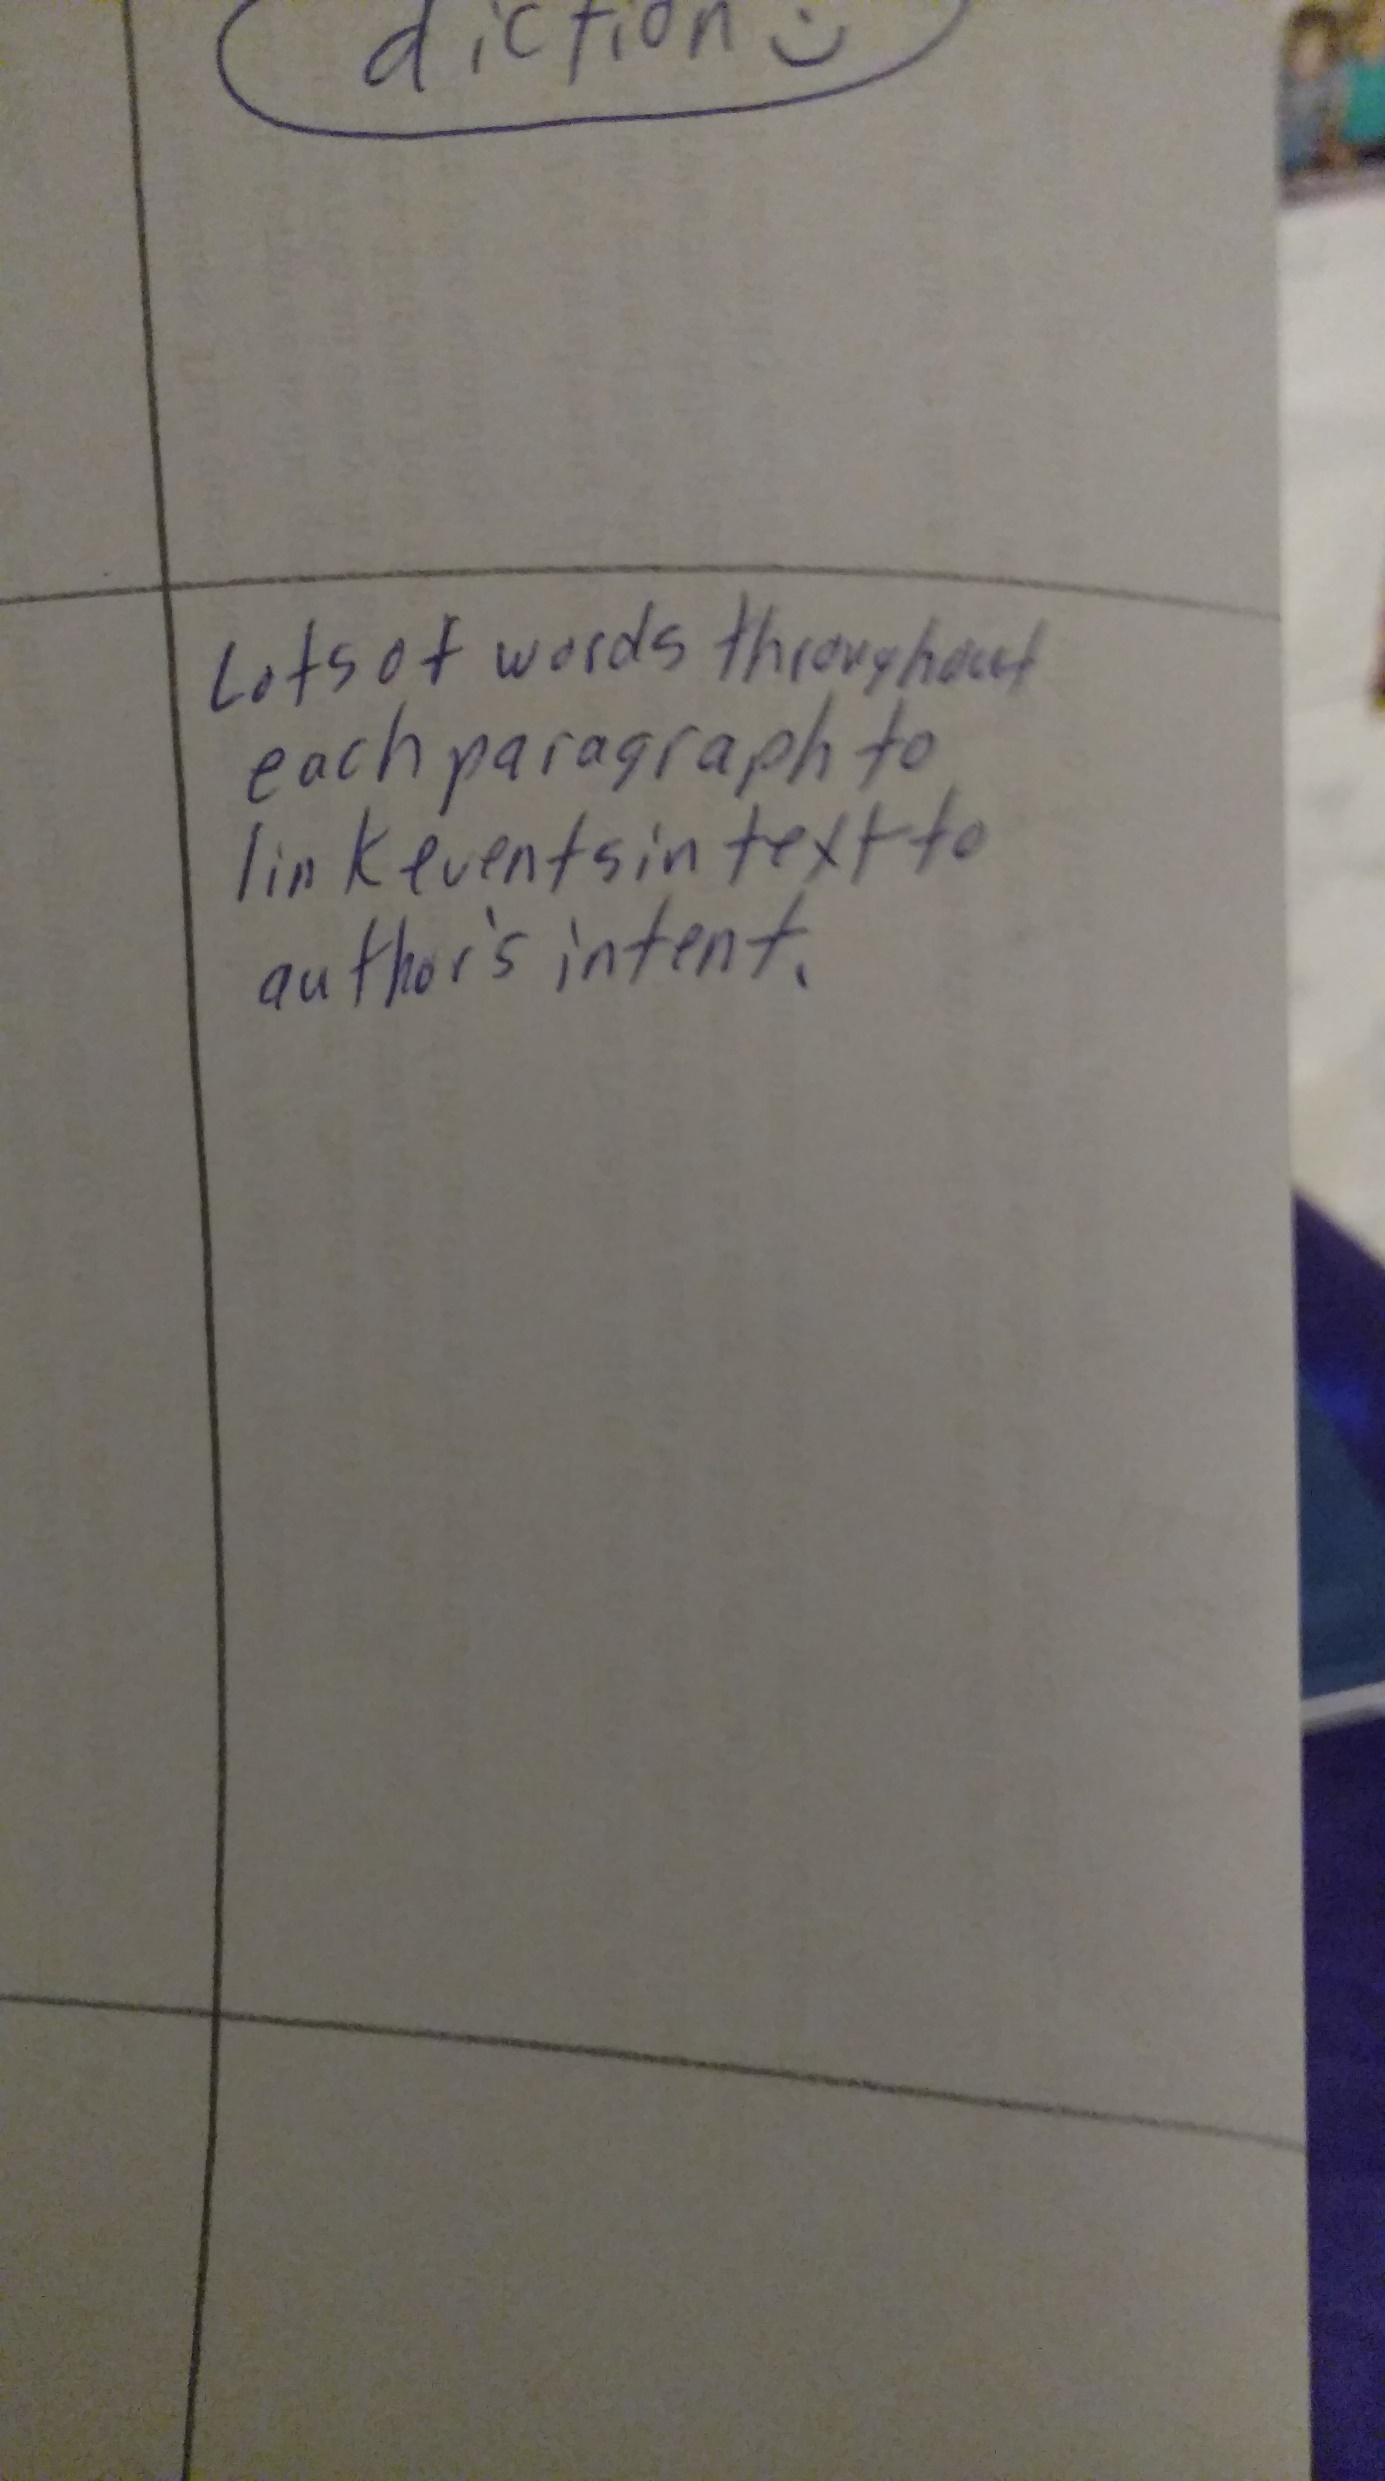 diction :)
Lots of words throughout
each paragraph to
link events in text to
author's intent.